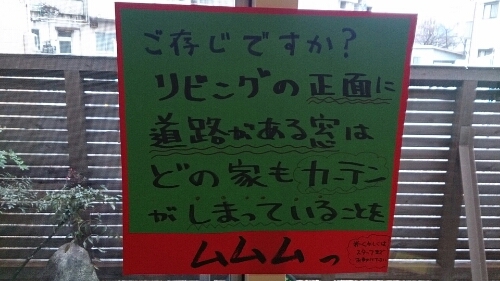 ご存じですか?
リビングの正面に
道路がある窓は
どの家もカーテン
がしまっていることを
ムムムっ